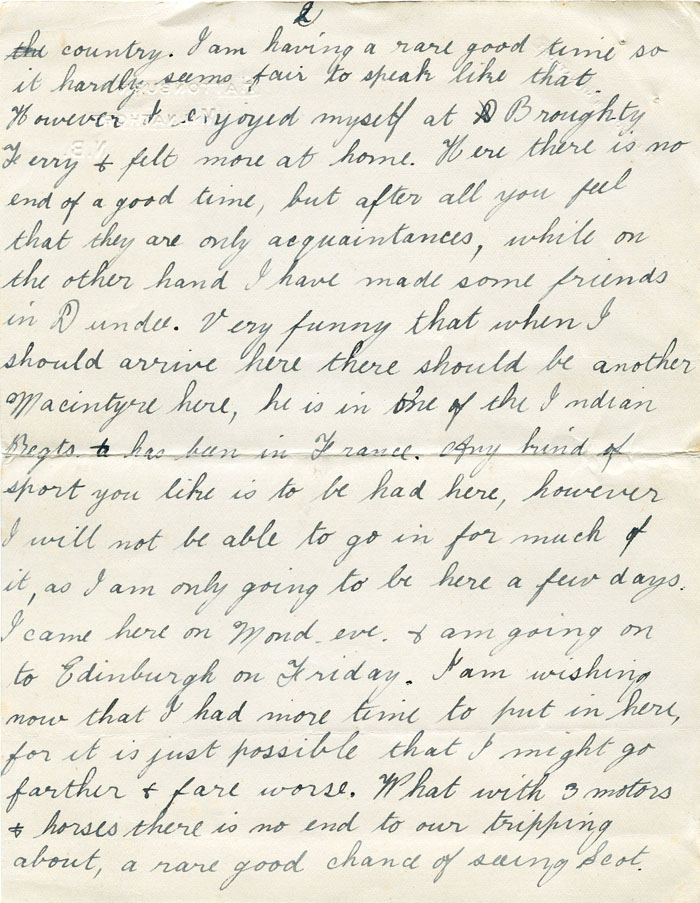 2
the country. I am having a rare good time so
it hardly seems fair to speak like that.
However I enjoyed myself at D Broughty
Ferry & felt more at home. Here there is no
end of a good time, but after all you feel
that they are only acquaintances, while on
the other hand I have made some friends
in Dundee. Very funny that when I
should arrive here there should be another
Macintyre here, he is in one of the Indian
Regts. & has been in France. Any kind of
sport you like is to be had here, however
I will not be able to go in for much of
it, as I am only going to be here a few days.
I came here on Mond. eve. & am going on
to Edinburgh on Friday. I am wishing
now that I had more time to put in here,
for it is just possible that I might go
farther & fare worse. What with 3 motors
& horses there is no end to our tripping
about, a rare good chance of seeing Scot.